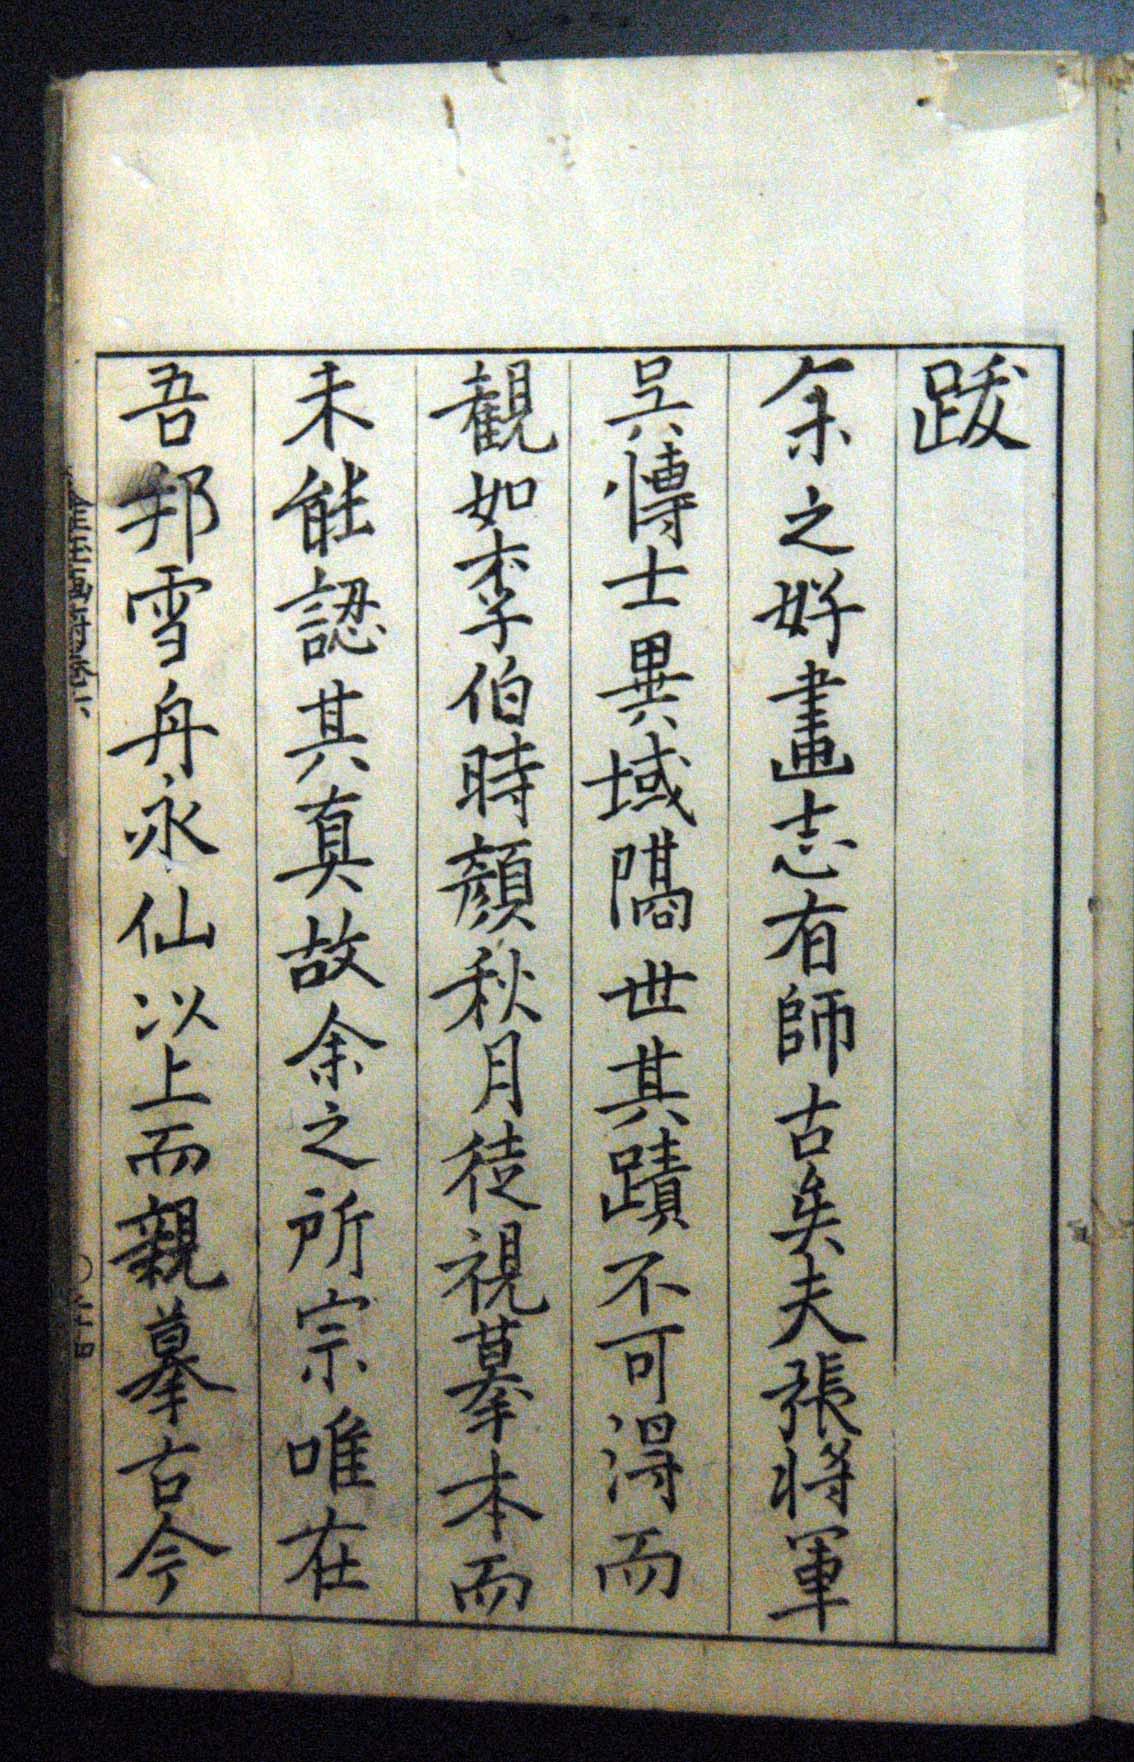 跋
余之好畫志有師古矣夫張將軍
吳博士異域隔世其蹟不可得而
觀如李伯時顏秋月徒視摹本而
未能認其真故余之所宗唯在
吾邦雪舟永仙以上而親摹古今